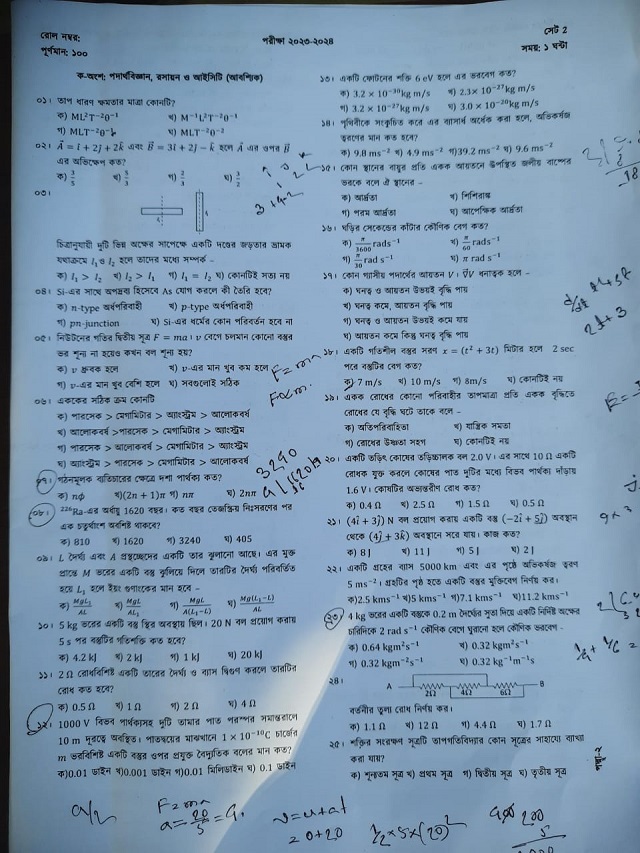 রোল নম্বর:
পূর্ণমান: ১০০
পরীক্ষা ২০২৩-২০২৪
সেট 2
সময়: ১ ঘন্টা
ক-অংশ: পদার্থবিজ্ঞান, রসায়ন ও আইসিটি (আবশ্যিক)
০১। তাপ ধারণ ক্ষমতার মাত্রা কোনটি?
ক) ML²T⁻²θ⁻¹ খ) M⁻¹L²T⁻²θ⁻¹
গ) MLT⁻²θ⁻¹ ঘ) MLT⁻²θ⁻²
০২। A⃗ = î + 2ĵ + 2k̂ এবং B⃗ = 3î + 2ĵ − k̂ হলে A⃗ এর ওপর B⃗
এর অভিক্ষেপ কত?
ক) 3/5 খ) 5/3 গ) 2/3 ঘ) 3/2
০৩।
চিত্রানুযায়ী দুটি ভিন্ন অক্ষের সাপেক্ষে একটি দণ্ডের জড়তার ভ্রামক
যথাক্রমে I₁ ও I₂ হলে তাদের মধ্যে সম্পর্ক –
ক) I₁ > I₂ খ) I₂ > I₁ গ) I₁ = I₂ ঘ) কোনটিই সত্য নয়
০৪। Si-এর সাথে অপদ্রব্য হিসেবে As যোগ করলে কী তৈরি হবে?
ক) n-type অর্ধপরিবাহী খ) p-type অর্ধপরিবাহী
গ) pn-junction ঘ) Si-এর ধর্মের কোন পরিবর্তন হবে না
০৫। নিউটনের গতির দ্বিতীয় সূত্র F = ma। v বেগে চলমান কোনো বস্তুর
ভর শূন্য না হয়েও কখন বল শূন্য হয়?
ক) v ধ্রুবক হলে খ) v-এর মান খুব কম হলে
গ) v-এর মান খুব বেশি হলে ঘ) সবগুলোই সঠিক
০৬। এককের সঠিক ক্রম কোনটি
ক) পারসেক > মেগামিটার > অ্যাংস্ট্রম > আলোকবর্ষ
খ) আলোকবর্ষ >পারসেক > মেগামিটার > অ্যাংস্ট্রম
গ) পারসেক > আলোকবর্ষ > মেগামিটার > অ্যাংস্ট্রম
ঘ) অ্যাংস্ট্রম > পারসেক > মেগামিটার > আলোকবর্ষ
০৭। গঠনমূলক ব্যতিচারের ক্ষেত্রে দশা পার্থক্য কত?
ক) nφ খ)(2n + 1)π গ) nπ ঘ) 2nπ
০৮। ²²⁶Ra-এর অর্ধায়ু 1620 বছর। কত বছর তেজস্ক্রিয় নিঃসরণের পর
এক চতুর্থাংশ অবশিষ্ট থাকবে?
ক) 810 খ) 1620 গ) 3240 ঘ) 405
০৯। L দৈর্ঘ্য এবং A প্রস্থচ্ছেদের একটি তার ঝুলানো আছে। এর মুক্ত
প্রান্তে M ভরের একটি বস্তু ঝুলিয়ে দিলে তারটির দৈর্ঘ্য পরিবর্তিত
হয়ে L₁ হলে ইয়ং গুণাংকের মান হবে –
ক) MgL₁/AL খ) MgL/AL₁ গ) MgL/A(L₁−L) ঘ) Mg(L₁−L)/AL
১০। 5 kg ভরের একটি বস্তু স্থির অবস্থায় ছিল। 20 N বল প্রয়োগ করায়
5 s পর বস্তুটির গতিশক্তি কত হবে?
ক) 4.2 kJ খ) 2 kJ গ) 1 kJ ঘ) 20 kJ
১১। 2 Ω রোধবিশিষ্ট একটি তারের দৈর্ঘ্য ও ব্যাস দ্বিগুণ করলে তারটির
রোধ কত হবে?
ক) 0.5 Ω খ) 1 Ω গ) 2 Ω ঘ) 4 Ω
১২। 1000 V বিভব পার্থক্যসহ দুটি তামার পাত পরস্পর সমান্তরালে
10 m দূরত্বে অবস্থিত। পাতদ্বয়ের মাঝখানে 1 × 10⁻¹⁰C চার্জের
m ভরবিশিষ্ট একটি বস্তুর ওপর প্রযুক্ত বৈদ্যুতিক বলের মান কত?
ক)0.01 ডাইন খ)0.001 ডাইন গ)0.01 মিলিডাইন ঘ) 0.1 ডাইন
১৩। একটি ফোটনের শক্তি 6 eV হলে এর ভরবেগ কত?
ক) 3.2 × 10⁻³⁰kg m/s খ) 2.3× 10⁻²⁷kg m/s
গ) 3.2 × 10⁻²⁷kg m/s ঘ) 3.0 × 10⁻²⁰kg m/s
১৪। পৃথিবীকে সংকুচিত করে এর ব্যাসার্ধ অর্ধেক করা হলে, অভিকর্ষজ
ত্বরণের মান কত হবে?
ক) 9.8 ms⁻² খ) 4.9 ms⁻² গ)39.2 ms⁻² ঘ) 9.6 ms⁻²
১৫। কোন স্থানের বায়ুর প্রতি একক আয়তনে উপস্থিত জলীয় বাষ্পের
ভরকে বলে ঐ স্থানের –
ক) আর্দ্রতা খ) শিশিরাঙ্ক
গ) পরম আর্দ্রতা ঘ) আপেক্ষিক আর্দ্রতা
১৬। ঘড়ির সেকেন্ডের কাঁটার কৌণিক বেগ কত?
ক) π/3600 rads⁻¹ খ) π/60 rads⁻¹
গ) π/30 rad s⁻¹ ঘ) π rad s⁻¹
১৭। কোন গ্যাসীয় পদার্থের আয়তন V। ∇⃗V ধনাত্মক হলে –
ক) ঘনত্ব ও আয়তন উভয়ই বৃদ্ধি পায়
খ) ঘনত্ব কমে, আয়তন বৃদ্ধি পায়
গ) ঘনত্ব ও আয়তন উভয়ই কমে যায়
ঘ) আয়তন কমে কিন্তু ঘনত্ব বৃদ্ধি পায়
১৮। একটি গতিশীল বস্তুর সরণ x = (t² + 3t) মিটার হলে 2 sec
পরে বস্তুটির বেগ কত?
ক) 7 m/s খ) 10 m/s গ) 8m/s ঘ) কোনটিই নয়
১৯। একক রোধের কোনো পরিবাহীর তাপমাত্রা প্রতি একক বৃদ্ধিতে
রোধের যে বৃদ্ধি ঘটে তাকে বলে –
ক) অতিপরিবাহিতা খ) যান্ত্রিক সমতা
গ) রোধের উষ্ণতা সহগ ঘ) কোনটিই নয়
২০। একটি তড়িৎ কোষের তড়িচ্চালক বল 2.0 V। এর সাথে 10 Ω একটি
রোধক যুক্ত করলে কোষের পাত দুটির মধ্যে বিভব পার্থক্য দাঁড়ায়
1.6 V। কোষটির অভ্যন্তরীণ রোধ কত?
ক) 0.4 Ω খ) 2.5 Ω গ) 1.5 Ω ঘ) 0.5 Ω
২১। (4î + 3ĵ) N বল প্রয়োগ করায় একটি বস্তু (−2î + 5ĵ) অবস্থান
থেকে (4ĵ + 3k̂) অবস্থানে সরে যায়। কাজ কত?
ক) 8 J খ) 11 J গ) 5 J ঘ) 2 J
২২। একটি গ্রহের ব্যাস 5000 km এবং এর পৃষ্ঠে অভিকর্ষজ ত্বরণ
5 ms⁻²। গ্রহটির পৃষ্ঠ হতে একটি বস্তুর মুক্তিবেগ নির্ণয় কর।
ক)2.5 kms⁻¹ খ)5 kms⁻¹ গ)7.1 kms⁻¹ ঘ)11.2 kms⁻¹
২৩। 4 kg ভরের একটি বস্তুকে 0.2 m দৈর্ঘ্যের সুতা দিয়ে একটি নির্দিষ্ট অক্ষের
চারিদিকে 2 rad s⁻¹ কৌণিক বেগে ঘুরানো হলে কৌণিক ভরবেগ -
ক) 0.64 kgm²s⁻¹ খ) 0.32 kgm²s⁻¹
গ) 0.32 kgm⁻²s⁻¹ ঘ) 0.32 kg⁻¹m⁻¹s
২৪।
A 2Ω 4Ω 6Ω B
বর্তনীর তুল্য রোধ নির্ণয় কর।
ক) 1.1 Ω খ) 12 Ω গ) 4.4 Ω ঘ) 1.7 Ω
২৫। শক্তির সংরক্ষণ সূত্রটি তাপগতিবিদ্যার কোন সূত্রের সাহায্যে ব্যাখ্যা
করা যায়?
ক) শূন্যতম সূত্র খ) প্রথম সূত্র গ) দ্বিতীয় সূত্র ঘ) তৃতীয় সূত্র
F=ma
3240
2t+3
F=ma
a=20/5=4
v=u+at
=0+20
½×5×(20)²